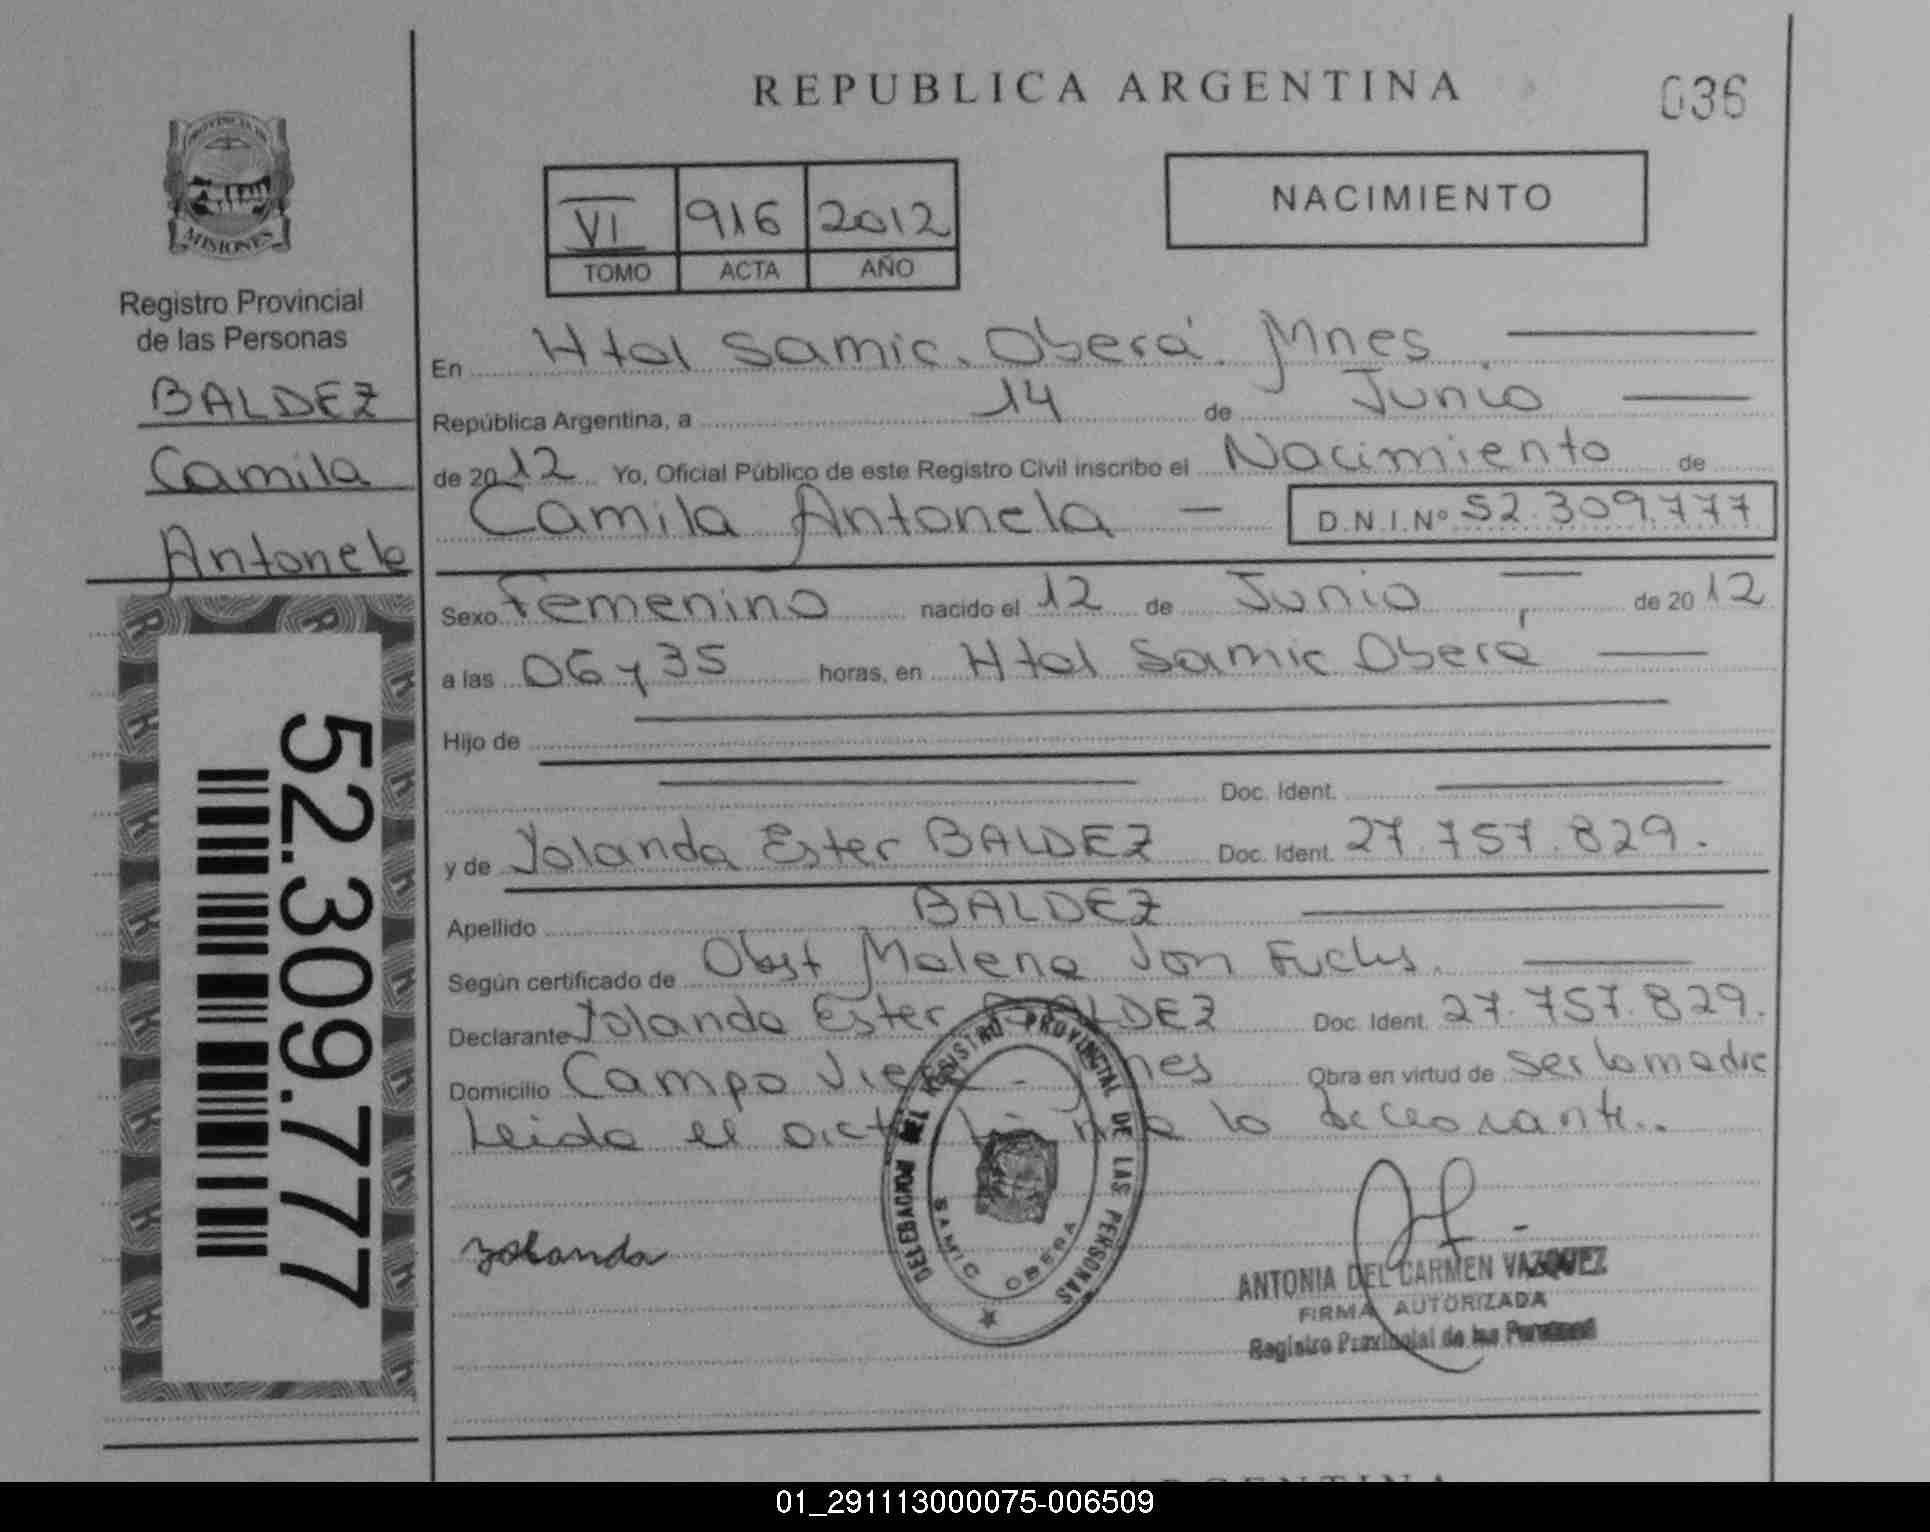 REPUBLICA ARGENTINA
036
PROVINCIA DE
MISIONES
Registro Provincial
de las Personas
BALDEZ
Camila
Antonela
52.309.777
VI 916 2012
TOMO ACTA AÑO
NACIMIENTO
En Htal Samic. Oberá. Mnes.
República Argentina, a 14 de Junio
de 2012 Yo, Oficial Público de este Registro Civil inscribo el Nacimiento de
Camila Antonela — D.N.I.Nº 52.309.777
Sexo Femenino nacido el 12 de Junio de 2012
a las 06 y 35 horas, en Htal Samic Oberá
Hijo de
Doc. Ident.
y de Yolanda Ester BALDEZ Doc. Ident. 27.757.829.
Apellido BALDEZ
Según certificado de Obst Malena Von Fuchs.
Declarante Yolanda Ester BALDEZ Doc. Ident. 27.757.829.
Domicilio Campo Viera - Mnes Obra en virtud de ser la madre
Leida el acta firma la declarante..
Yolanda
DELEGACION DEL REGISTRO PROVINCIAL DE LAS PERSONAS
SAMIC OBERA
ANTONIA DEL CARMEN VAZQUEZ
FIRMA AUTORIZADA
Registro Provincial de las Personas
ARGENTINA
01_291113000075-006509